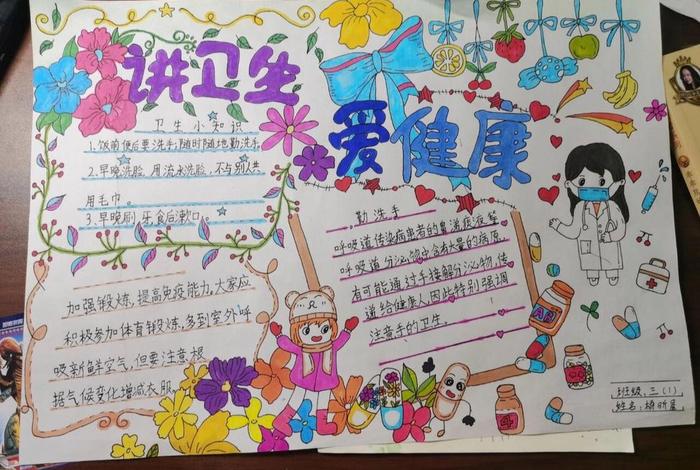 讲卫生
爱健康
卫生小知识
1.饭前便后要洗手,随时随地勤洗手
2.早晚洗脸,用流水洗脸,不与别人共
用毛巾。
3.早晚刷牙,食后漱口。
勤洗手
呼吸道传染病患者的鼻涕痰液等
呼吸道分泌物中含有大量的病原,
有可能通过手接触分泌物,传
道给健康人,因此特别强调
注意手的卫生。
加强锻炼,提高免疫能力,大家应
积极参加体育锻炼,多到室外呼
吸新鲜空气,但要注意根
据气候变化增减衣服。
班级:三(1)
姓名: